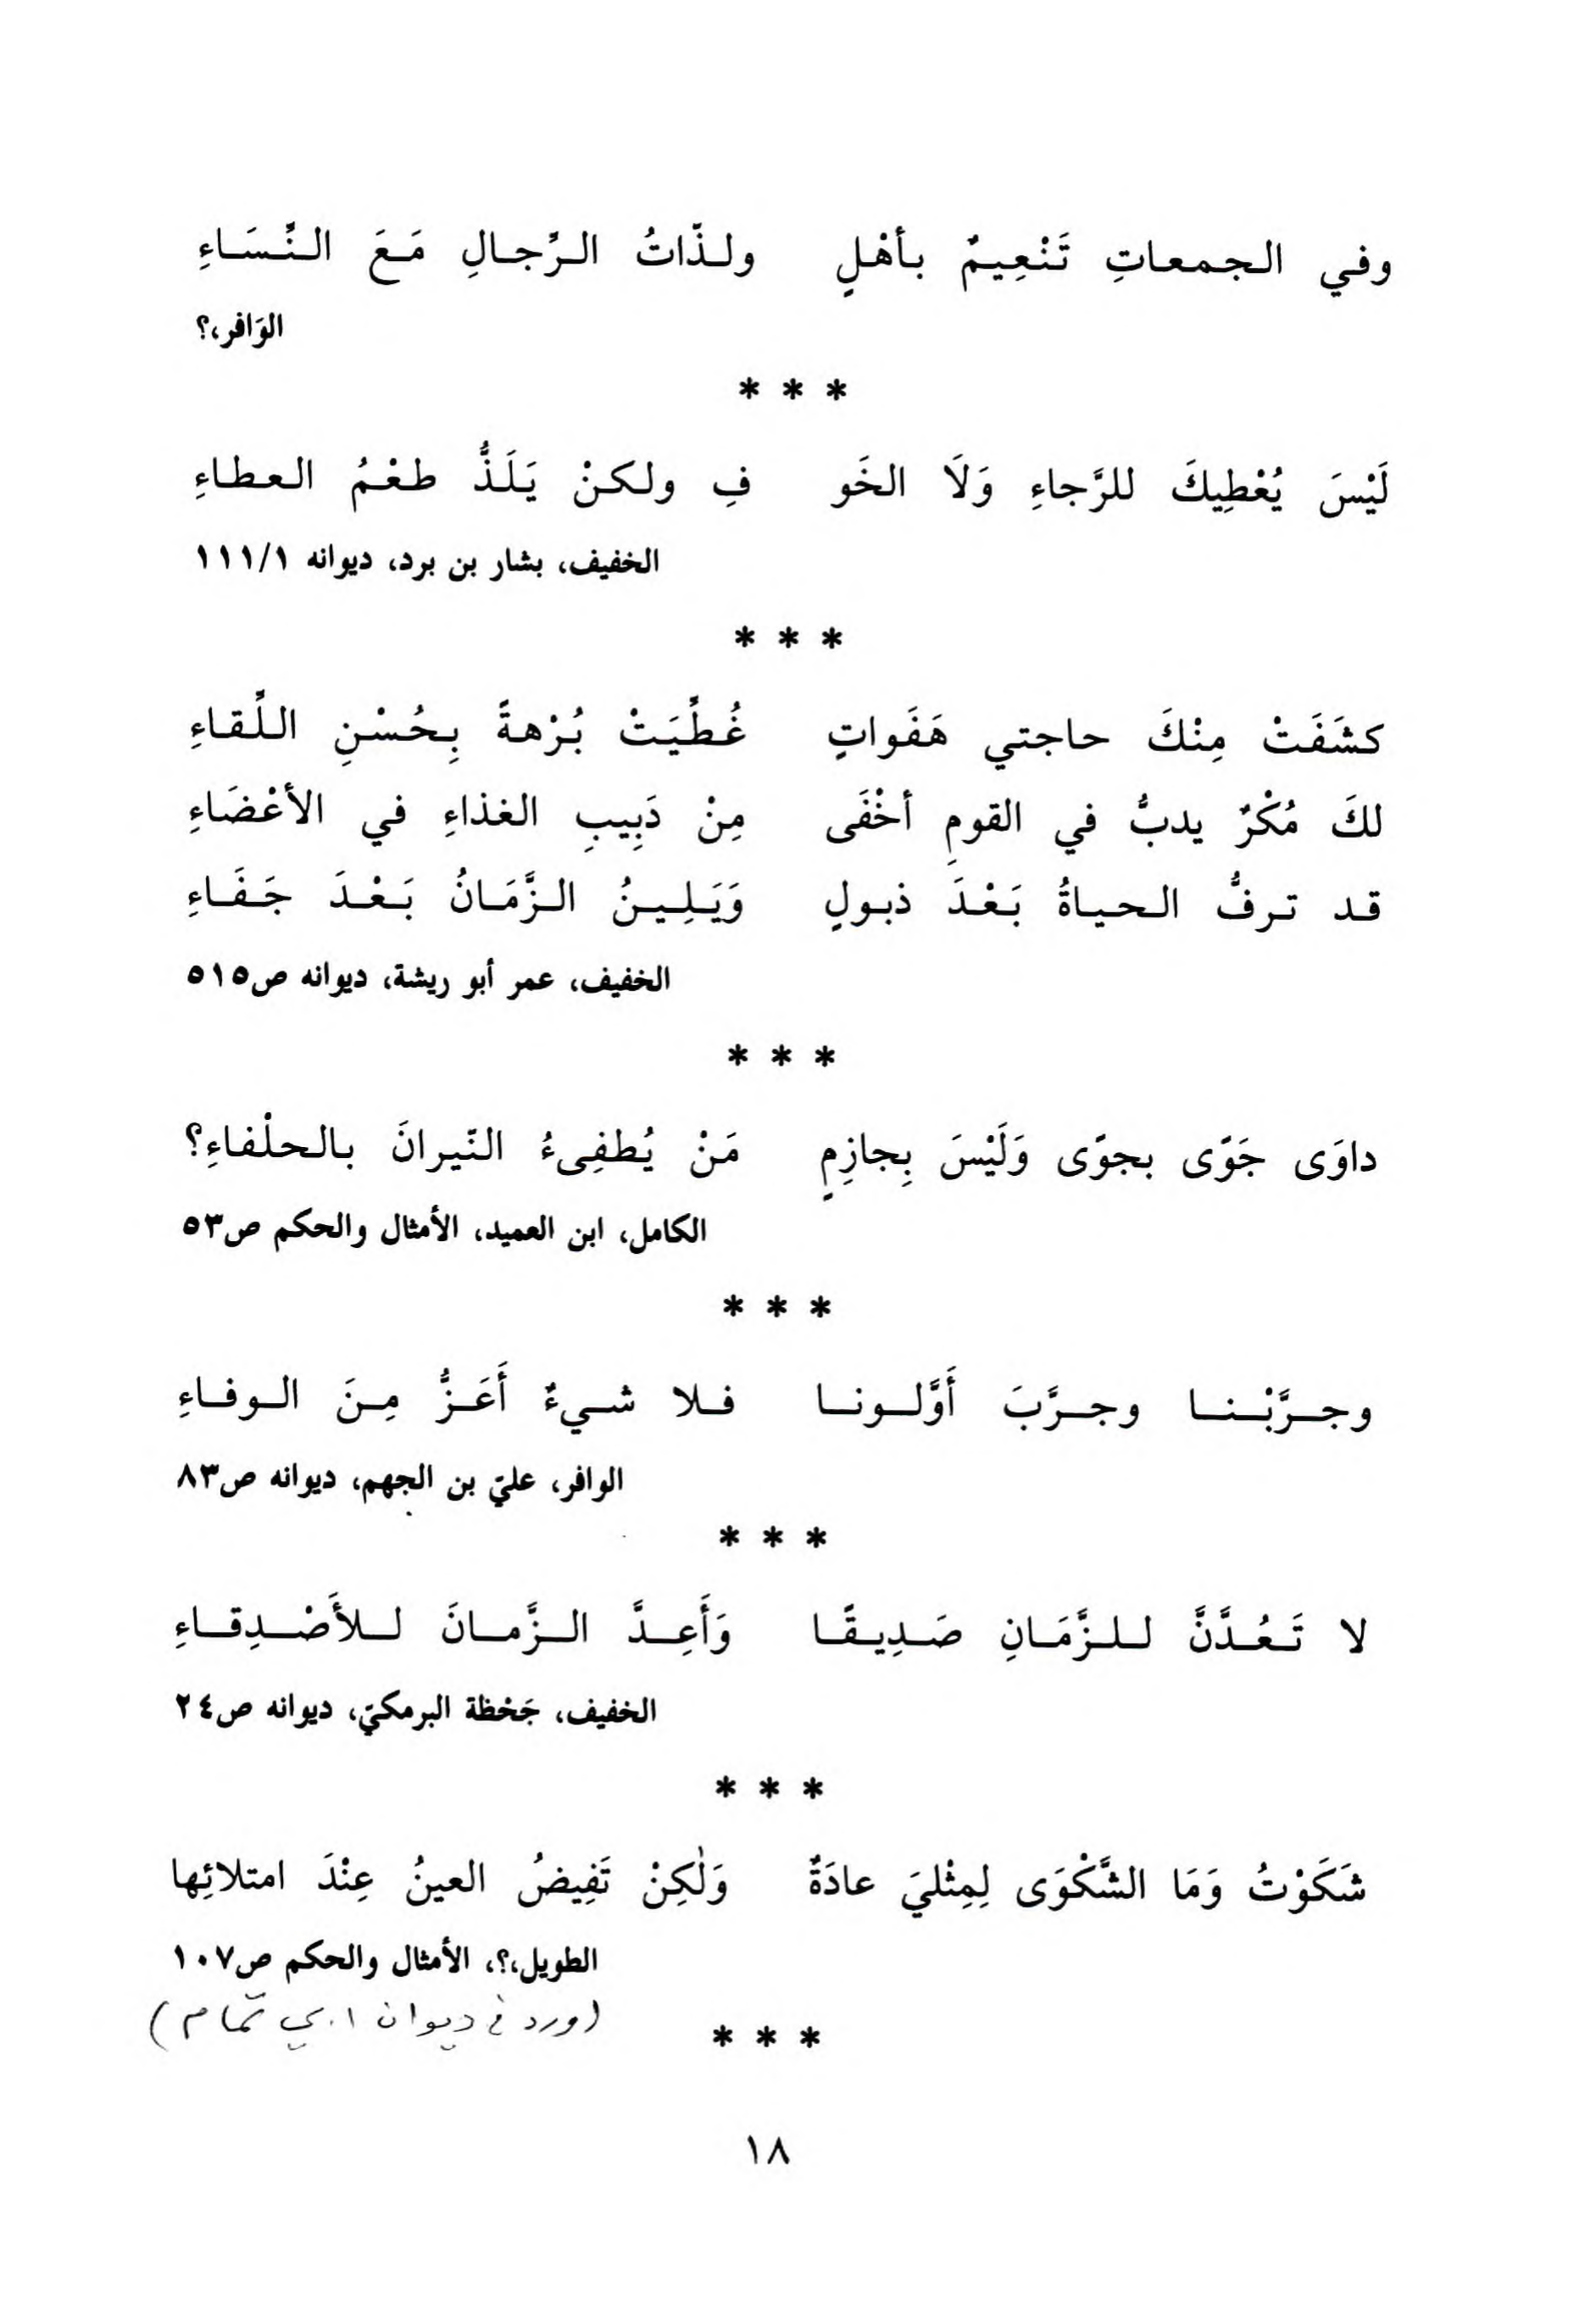 وفي الجمعاتِ تَنْعِيمٌ بأهْلٍ ولذّاتُ الرِّجالِ مَعَ النِّسَاءِ
الوَافر،؟
* * *
لَيْسَ يُعْطِيكَ للرَّجاءِ وَلَا الخَو فِ ولكنْ يَلَذُّ طعْمُ العطاءِ
الخفيف، بشار بن برد، ديوانه ١١١/١
* * *
كشَفَتْ مِنْكَ حاجتي هَفَواتٍ غُطِّيَتْ بُرْهةً بِحُسْنِ اللِّقاءِ
لكَ مُكْرٌ يدبُّ في القومِ أخْفَى مِنْ دَبِيبِ الغذاءِ في الأعْضَاءِ
قد ترفُّ الحياةُ بَعْدَ ذبولٍ وَيَلِينُ الزَّمَانُ بَعْدَ جَفَاءِ
الخفيف، عمر أبو ريشة، ديوانه ص٥١٥
* * *
داوَى جَوًى بجوًى وَلَيْسَ بِجازِمٍ مَنْ يُطفِىءُ النّيرانَ بالحلْفاءِ؟
الكامل، ابن العميد، الأمثال والحكم ص٥٣
* * *
وجرَّبْنا وجرَّبَ أَوَّلونا فلا شيءٌ أَعَزُّ مِنَ الوفاءِ
الوافر، عليّ بن الجهم، ديوانه ص٨٣
* * *
لا تَعُدَّنَّ للزَّمَانِ صَدِيقًا وَأَعِدَّ الزَّمانَ للأَصْدِقاءِ
الخفيف، جَحْظة البرمكيّ، ديوانه ص٢٤
* * *
شَكَوْتُ وَمَا الشَّكْوَى لِمِثْليَ عادَةٌ وَلٰكِنْ تَفِيضُ العينُ عِنْدَ امتلائِها
الطويل،؟، الأمثال والحكم ص١٠٧
(ورد في ديوان ابي تمام)
* * *
١٨